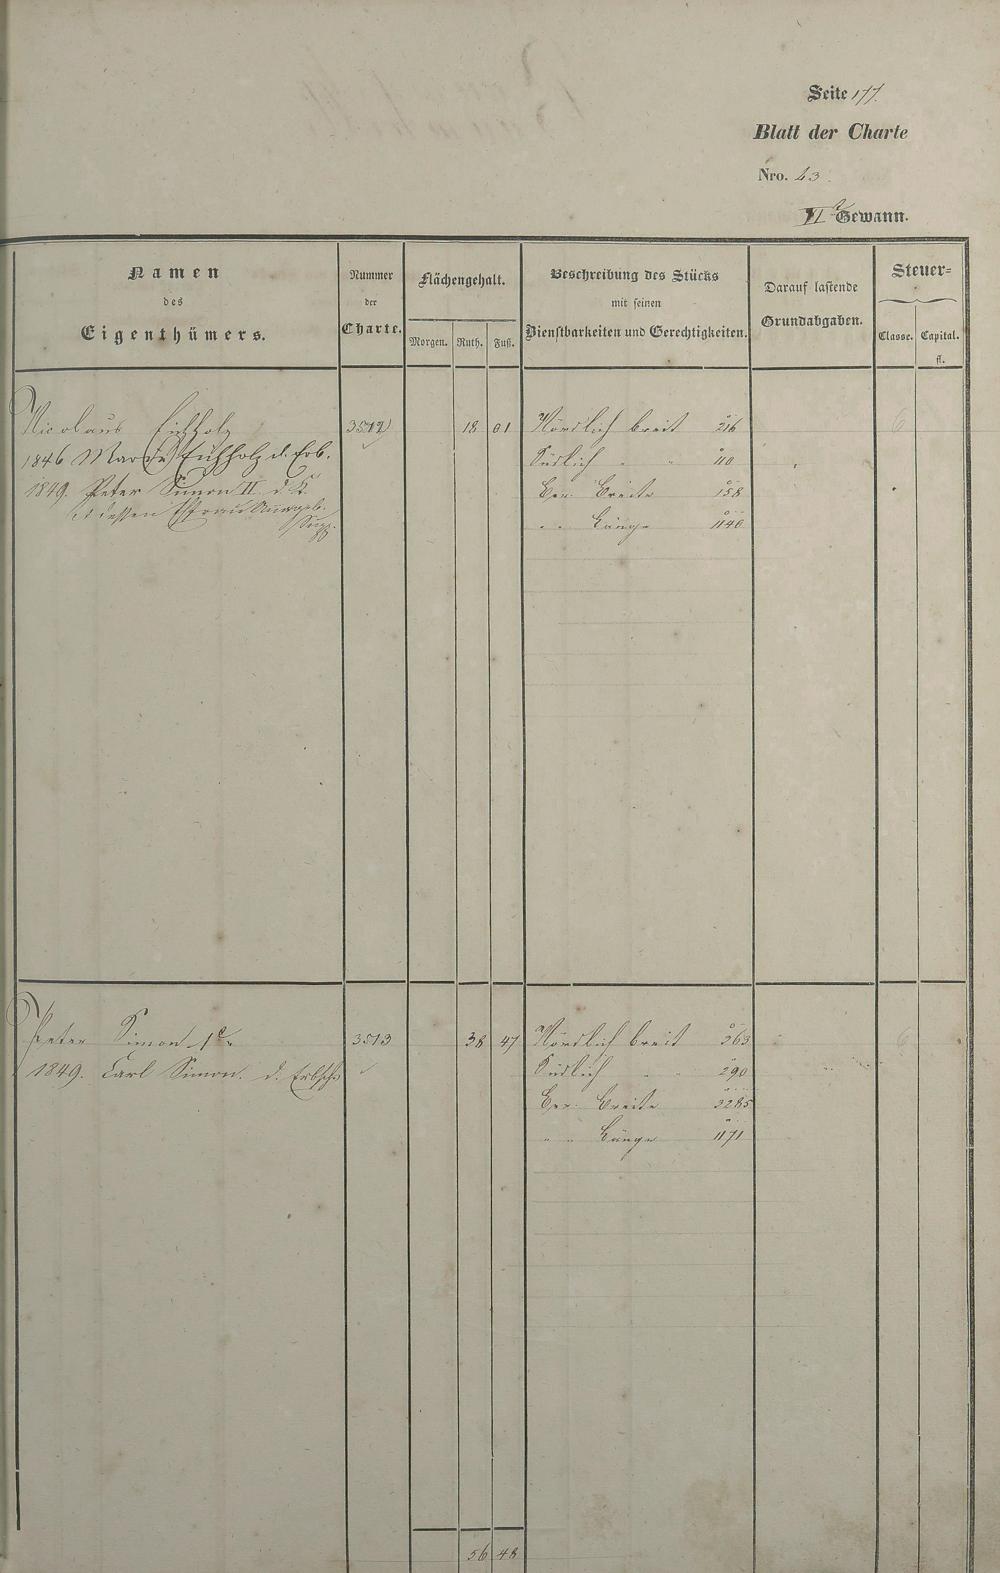 Seite 177.
Blatt der Charte
Nro. 43.
VI Gewann.
Namen
des
Eigenthümers.
Nummer
der
Charte.
Flächengehalt.
Morgen. Ruth. Fuß.
Beschreibung des Stücks
mit seinen
Dienstbarkeiten und Gerechtigkeiten.
Darauf lastende
Grundabgaben.
Steuer=
Classe. Capital.
fl.
Nicolaus Eichholz 3512 18 01 Nördlich breit 216 6
1846 Maria Eichholz d. Erb. Südlich " " 110
1849. Peter Simon II. d. K. Ger. Breite 158
u dessen Ehfrau " " Länge 1140
Peter Simon 1r 3513 38 47 Nördlich breit 363 6
1849. Carl Simon. d. Erbsch. Südlich " " 290
Ger. Breite 3285
" " Länge 1171
56 48